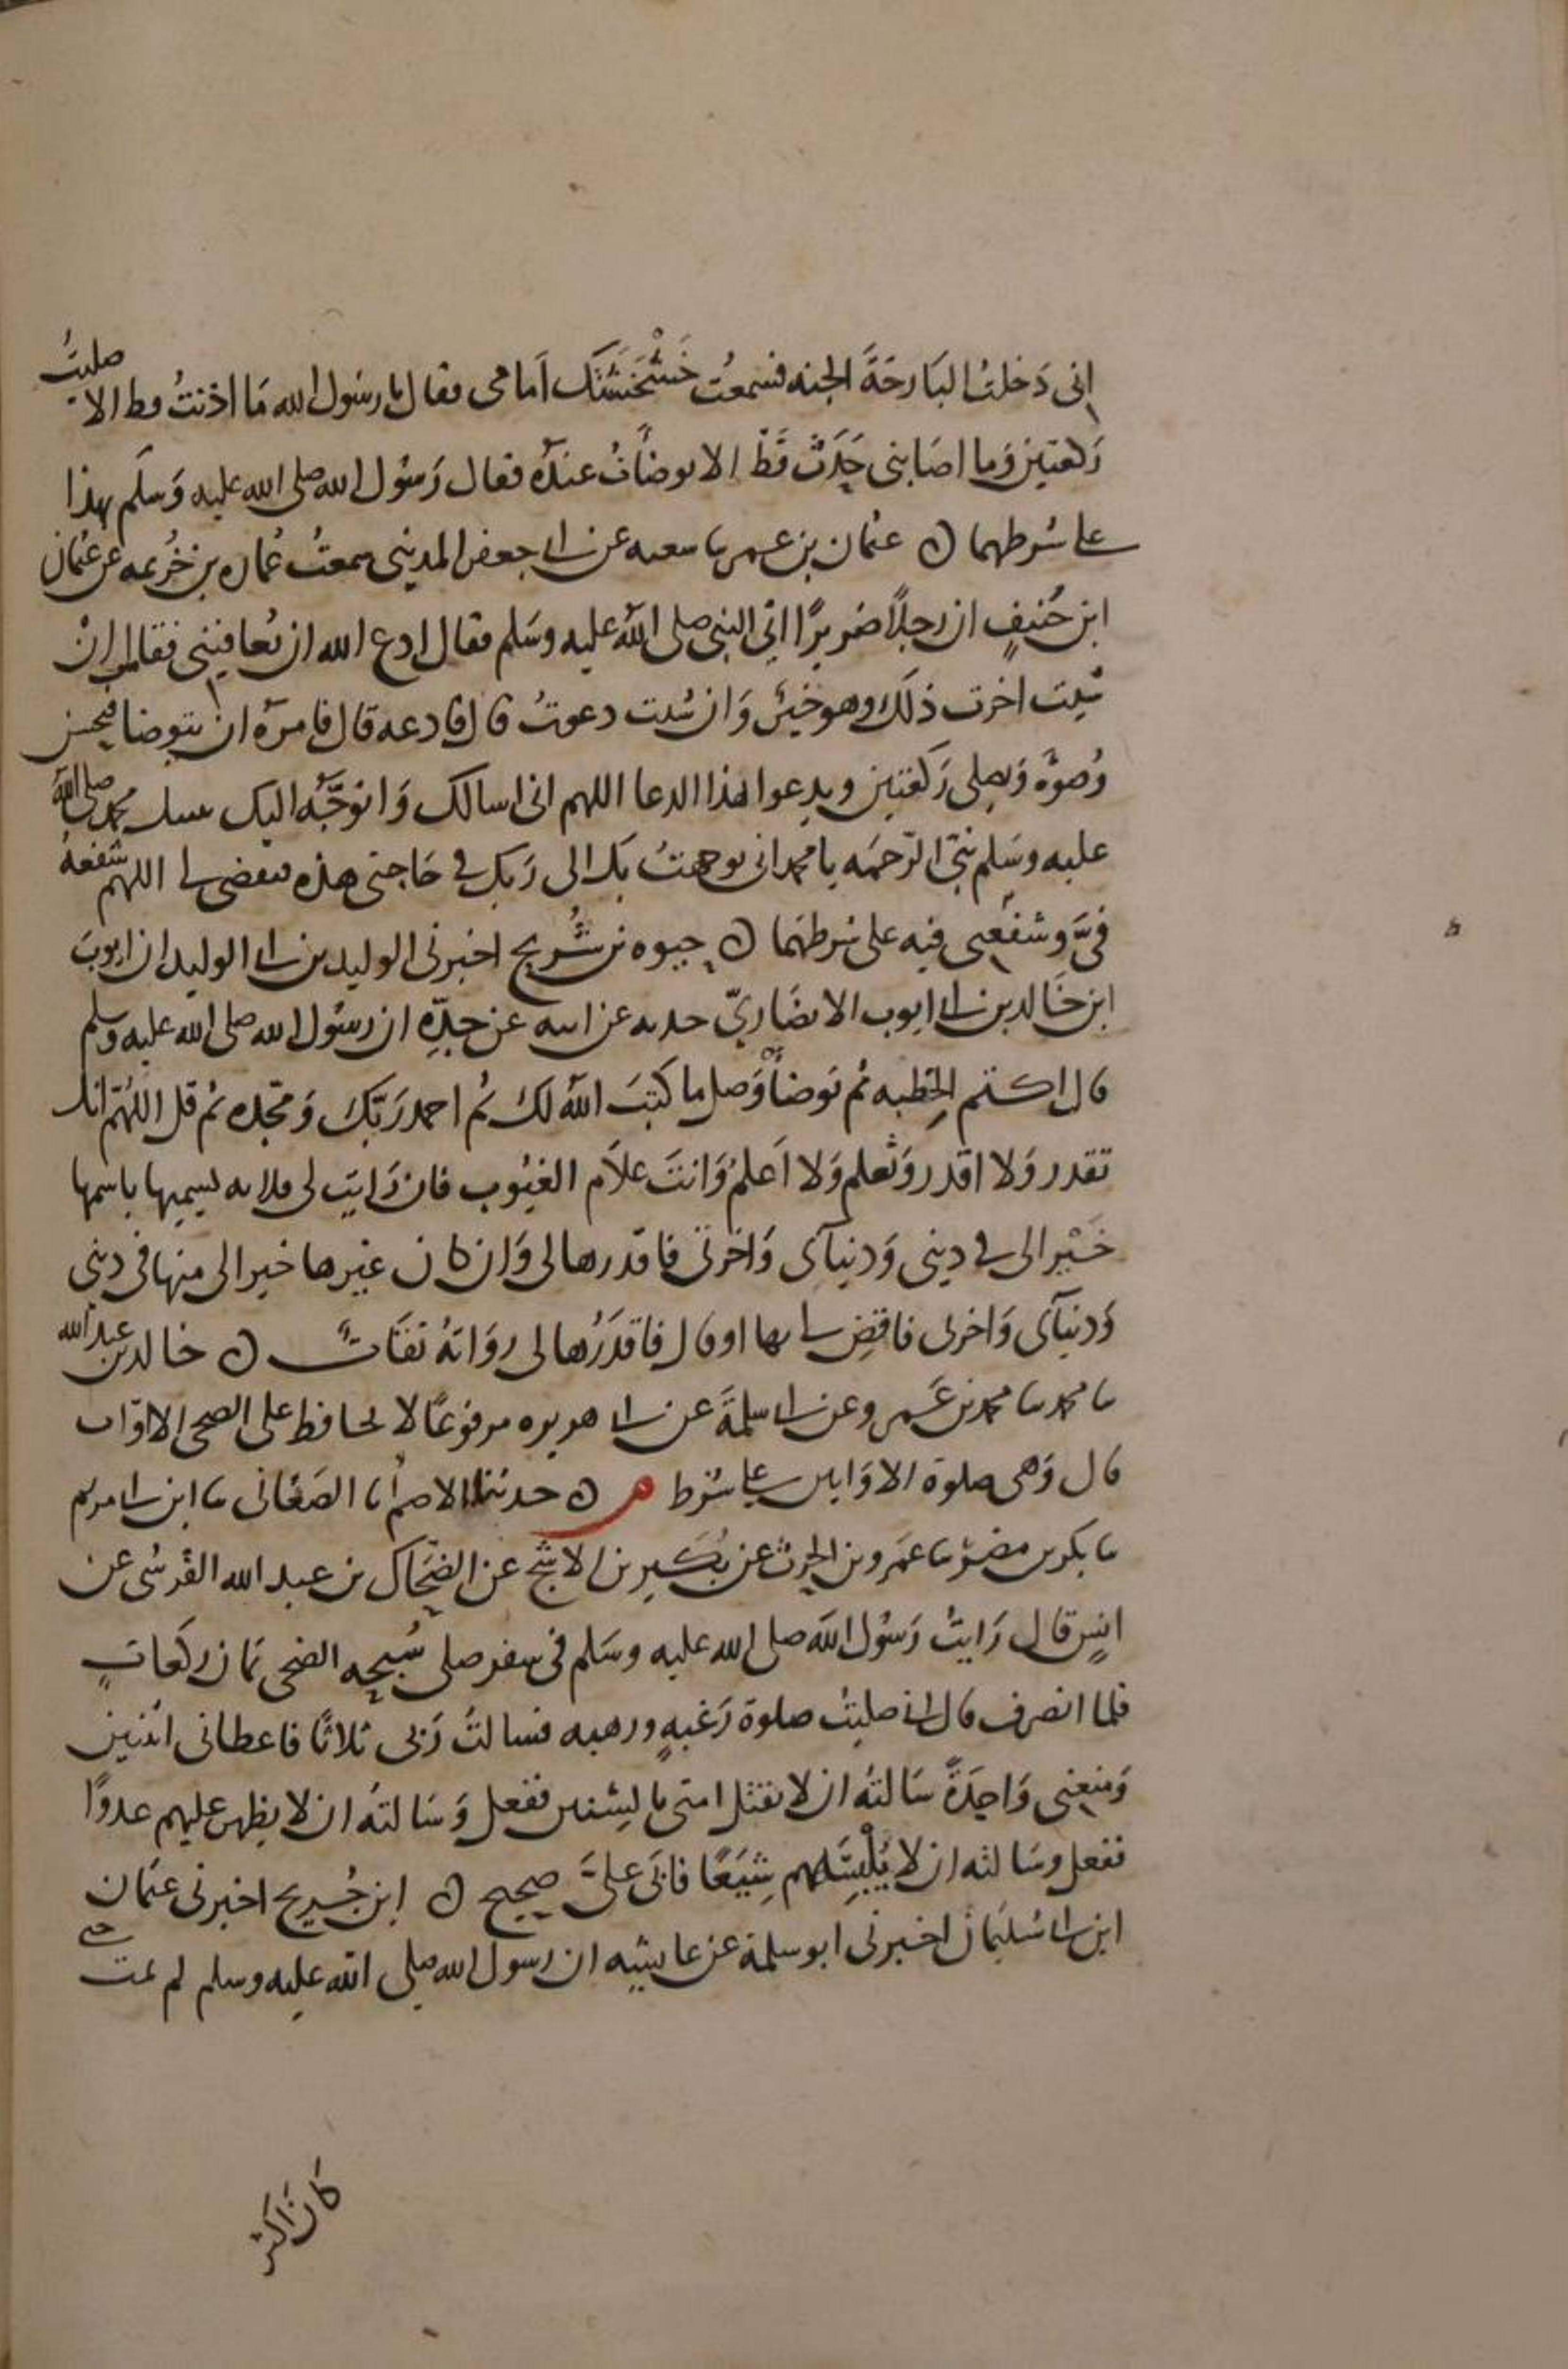 انى دَخلتُ البَارحَةَ الجنه فسمعتُ خَشْخَشَتَكَ اَمامى فقال يا رسُول الله مَا اذنتُ قط الا صليتُ
رَكعتين وَما اصَابنى حَدَثٌ قَطّ الا توضأتُ عندَه فقال رَسُول الله صلى الله عليه وَسلم بهذا
على شرطهما ن عثمان بن عمر ثنا شعبه عن ابى جعفر المدينى سمعتُ عُماره بن خُزيمه عن عثمان
ابن حُنيفٍ ان رجلاً ضريرًا اتى النبى صلى الله عليه وسَلم فقال ادع الله ان يُعافينى فقال انْ
شيت اخرت ذلكَ وهو خيرٌ وَان شيت دعوتُ قال فادعه قال فامرَه ان يتوضا فيحسن
وُضوءَه وَيصلى رَكعتين ويدعوا بهذا الدعا اللهم انى اسالك وَاتوجَّه اليك بنبيك محمد صلى الله
عليه وسَلم نبىّ الرّحمَه يا محمد انى توجهتُ بك الى رَبك فى حَاجتى هذه فتقضى لى اللهم شفعهُ
فىَّ وشفعنى فيه على شرطهما ن حيوه بن شُريح اخبرنى الوليد بن ابى الوليد ان ايوبَ
ابن خَالد بن ابى ايوب الانصَاريّ حدثه عن ابيه عن جدِّه ان رسُول الله صلى الله عليه وسلم
قال اكتم الخِطبه ثم توضأ وَصل ما كتبَ الله لك ثم احمد رَبّكَ وَمجّده ثم قل اللهُمّ انك
تقدر وَلا اقدر وَتعلم وَلا اَعلمُ وَانتَ علاَّم الغيُوب فان رَايتَ لى فلانه تسميها باسمها
خَيْرا لى فى دينى وَدنيآى وَاخرتى فاقدرها لى وَان كان غيرها خيرا لى منها فى دينى
وَدنيآى وَاخرتى فاقضِ لى بها او قال فاقدُرْها لى رواتهُ ثقَاتٌ ن خالد بن عبد الله
ثنا محمد ثنا محمد بن عَمرو عن ابى سلمةَ عن ابى هريره مرفوعًا لا يحافظ على الضحى الا اوّاب
قال وَهى صلوة الاوَابين على شرط م ن حدثنا الاصم انا الصَغانى ثنا ابن ابى مريم
ثنا بكر بن مضرٍ ثنا عمَرو بن الحرث عن بُكَير بن الاشجّ عن الضحَّاك بن عبد الله القُرشى عن
انسٍ قال رَايتُ رَسُول الله صلى الله عليه وسَلم فى سفر صلى سُبحه الضحى ثمان ركعاتٍ
فلما انصرف قال انى صليتُ صلوة رَغبهٍ ورهبه فسالتُ رَبى ثلاثًا فاعطانى اثنين
وَمنعنى وَاحِدَةً سَالتهُ ان لا يقتل امتى بالسنين ففعل وَسَالتهُ ان لا يظهر عليهم عدوًّا
ففعل وسَالته ان لا يُلْبِسَهم شِيَعًا فابى علىَّ صحيح ن ابن جُريج اخبرنى عثمان
ابن ابى سُليمان اخبرنى ابو سلمة عن عايشه ان رسول الله صلى الله عليه وسلم لم يمت حتى
كان اكثر